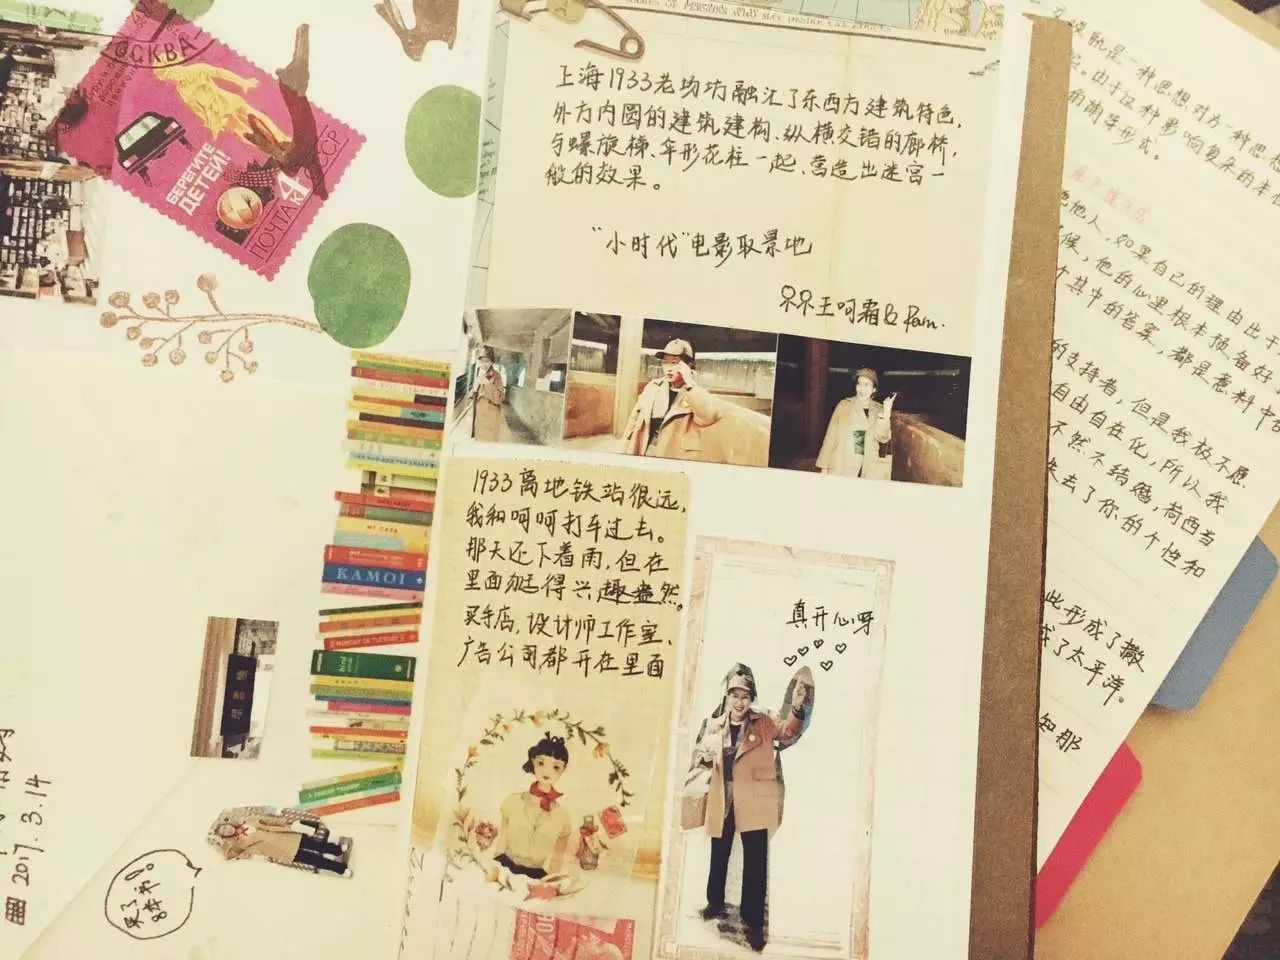 МОСКВА
БЕРЕГИТЕ
ДЕТЕЙ!
ПОЧТА
4
К
СССР
上海1933老场坊融汇了东西方建筑特色,
外方内圆的建筑建构、纵横交错的廊桥,
与螺旋梯、伞形花柱一起、营造出迷宫一
般的效果。
“小时代”电影取景地
王呵霜&Pam.
1933离地铁站很远,
我和呵呵打车过去。
那天还下着雨,但在
里面挺得兴趣盎然。
买手店,设计师工作室、
广告公司都开在里面
真开心呀
KAMOI
2017.3.14
是一种思想对另一种思
由于这种影响复杂而丰
形式。
他人,如果自己的理由出于
候,他的心里根本预备好
个其中的答案,都是意料中
的支持者,但是我极不愿
自由自在化,所以我
不然不结婚,荷西当
失去了你的个性和
此形成了撒
成了太平洋。
知那